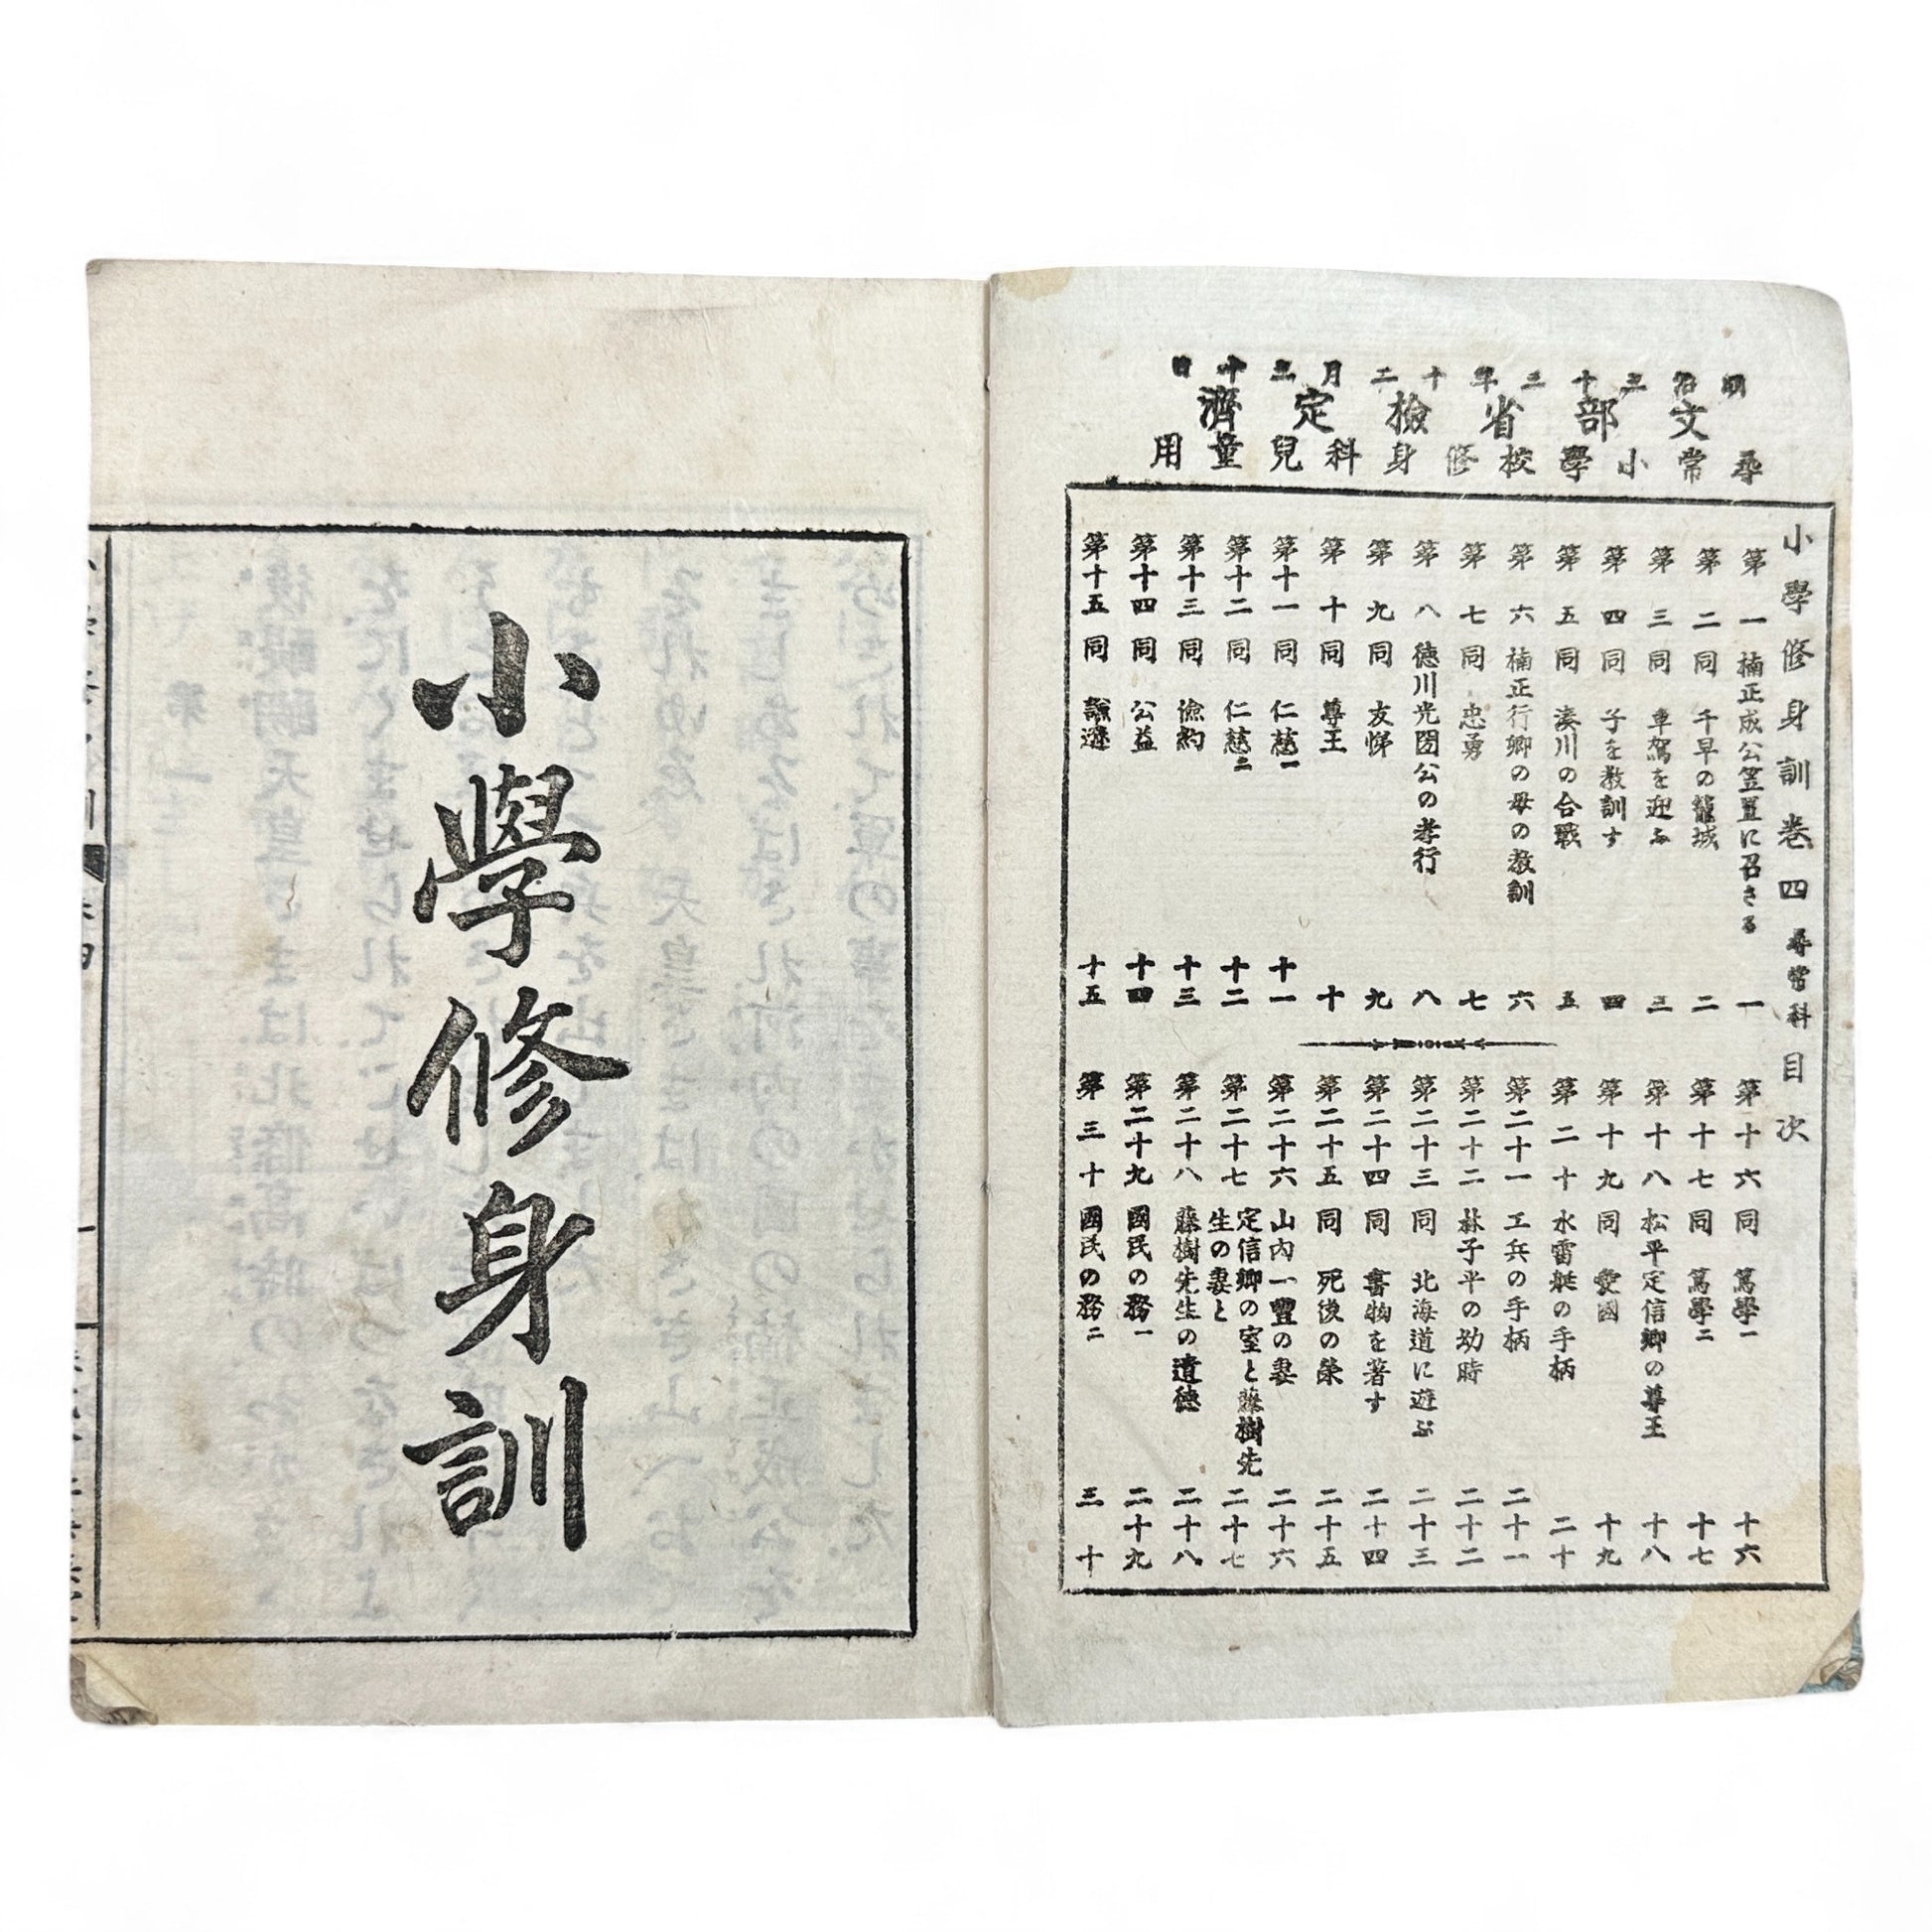 明治三十二年十二月三十日
文部省檢定濟
尋常小學校修身科兒童用
小學修身訓卷四 尋常科 目次
第一 楠正成公笠置に召さる 一
第二 同 千早の籠城 二
第三 同 車駕を迎ふ 三
第四 同 子を教訓す 四
第五 同 湊川の合戰 五
第六 楠正行卿の母の教訓 六
第七 同 忠勇 七
第八 德川光圀公の孝行 八
第九 同 友悌 九
第十 同 尊王 十
第十一 同 仁慈一 十一
第十二 同 仁慈二 十二
第十三 同 儉約 十三
第十四 同 公益 十四
第十五 同 謙遜 十五
第十六 同 篤學一 十六
第十七 同 篤學二 十七
第十八 松平定信卿の尊王 十八
第十九 同 愛國 十九
第二十 水雷艇の手柄 二十
第二十一 工兵の手柄 二十一
第二十二 林子平の幼時 二十二
第二十三 同 北海道に遊ぶ 二十三
第二十四 同 書物を著す 二十四
第二十五 同 死後の榮 二十五
第二十六 山内一豐の妻 二十六
第二十七 定信卿の室と藤樹先
生の妻と 二十七
第二十八 藤樹先生の遺德 二十八
第二十九 國民の務一 二十九
第三十 國民の務二 三十
小學修身訓